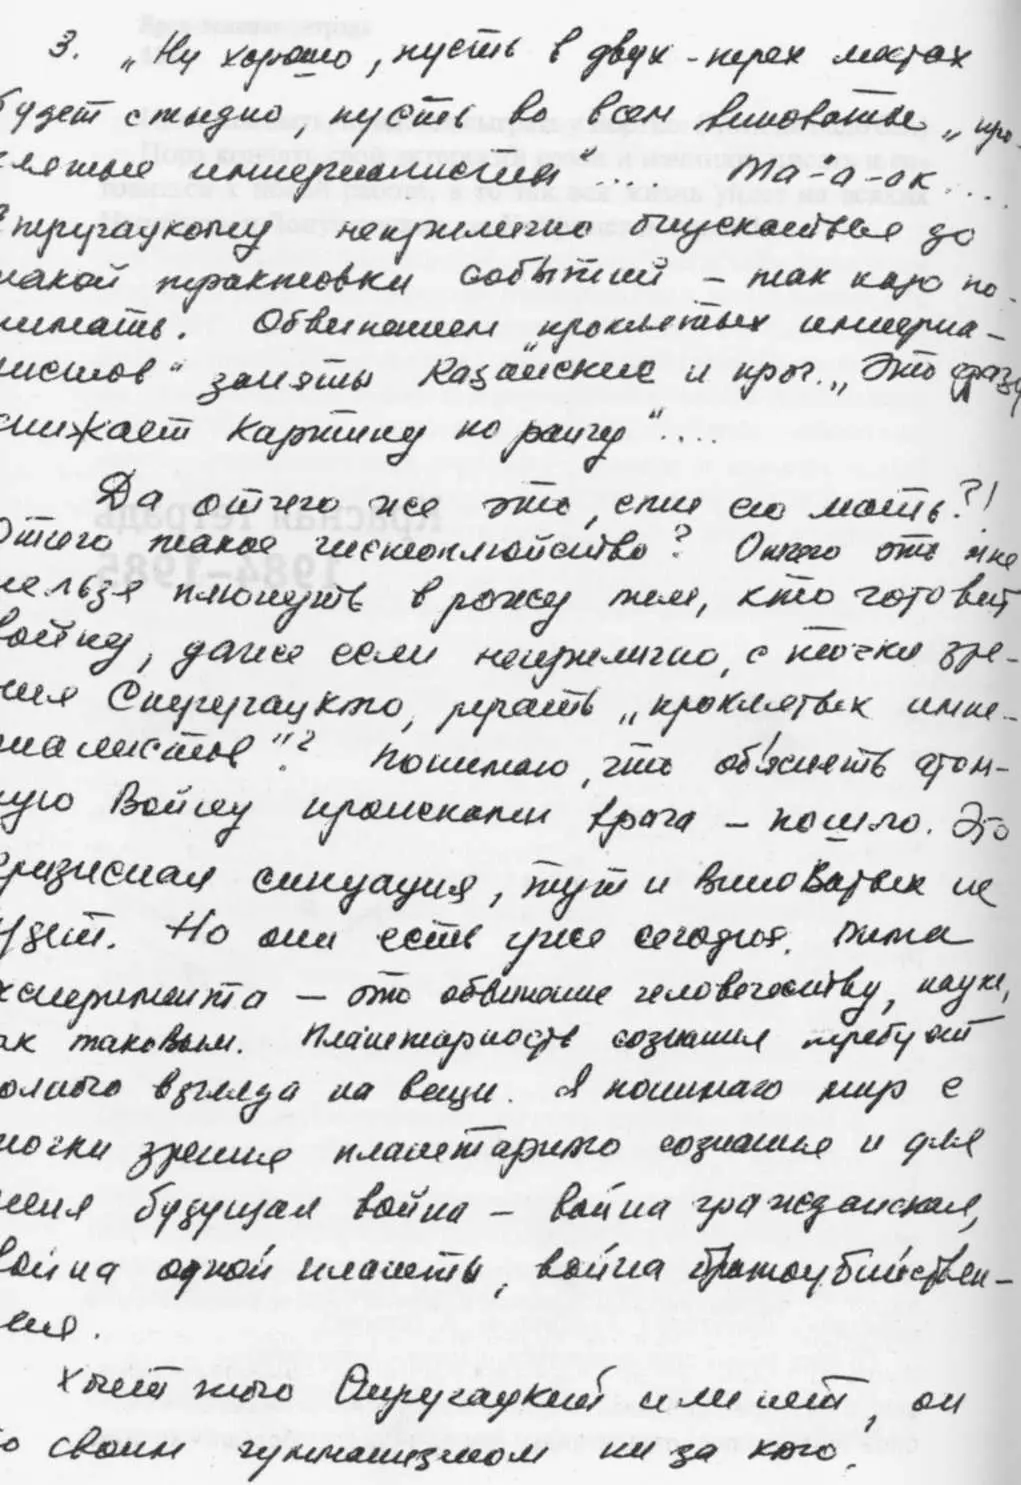 3. „Ну хорошо, пусть в двух-трех местах
будет стыдно, пусть во всем виноваты „про-
клятые империалисты“.... Та-а-ак....
Стругацкому неприлично опускаться до
такой трактовки событий – так надо по-
нимать. Обвинением „проклятых империа-
листов“ заняты Казанские и проч. „Это сразу
снижает картину по рангу“....
Да отчего же это, его мать?!
Отчего такое чистоплюйство? Отчего это мне
нельзя плюнуть в рожу тем, кто готовит
войну, даже если неприлично, с точки зре-
ния Стругацкого, ругать „проклятых импе-
риалистов“? Понимаю, что объяснять атом-
ную войну происками врага – пошло. Это
кризисная ситуация, тут и виноватых не
будет. Но они есть уже сегодня. Тема
эксперимента – это обвинение человечеству, науке,
как таковым. Планетарность сознания требует
полного взгляда на вещи. Я понимаю мир с
точки зрения планетарного сознания и для
меня будущая война – война гражданская,
война одной планеты, война братоубийствен-
ная.
Хочет того Стругацкий или нет, он
со своим гуманизмом ни за кого.